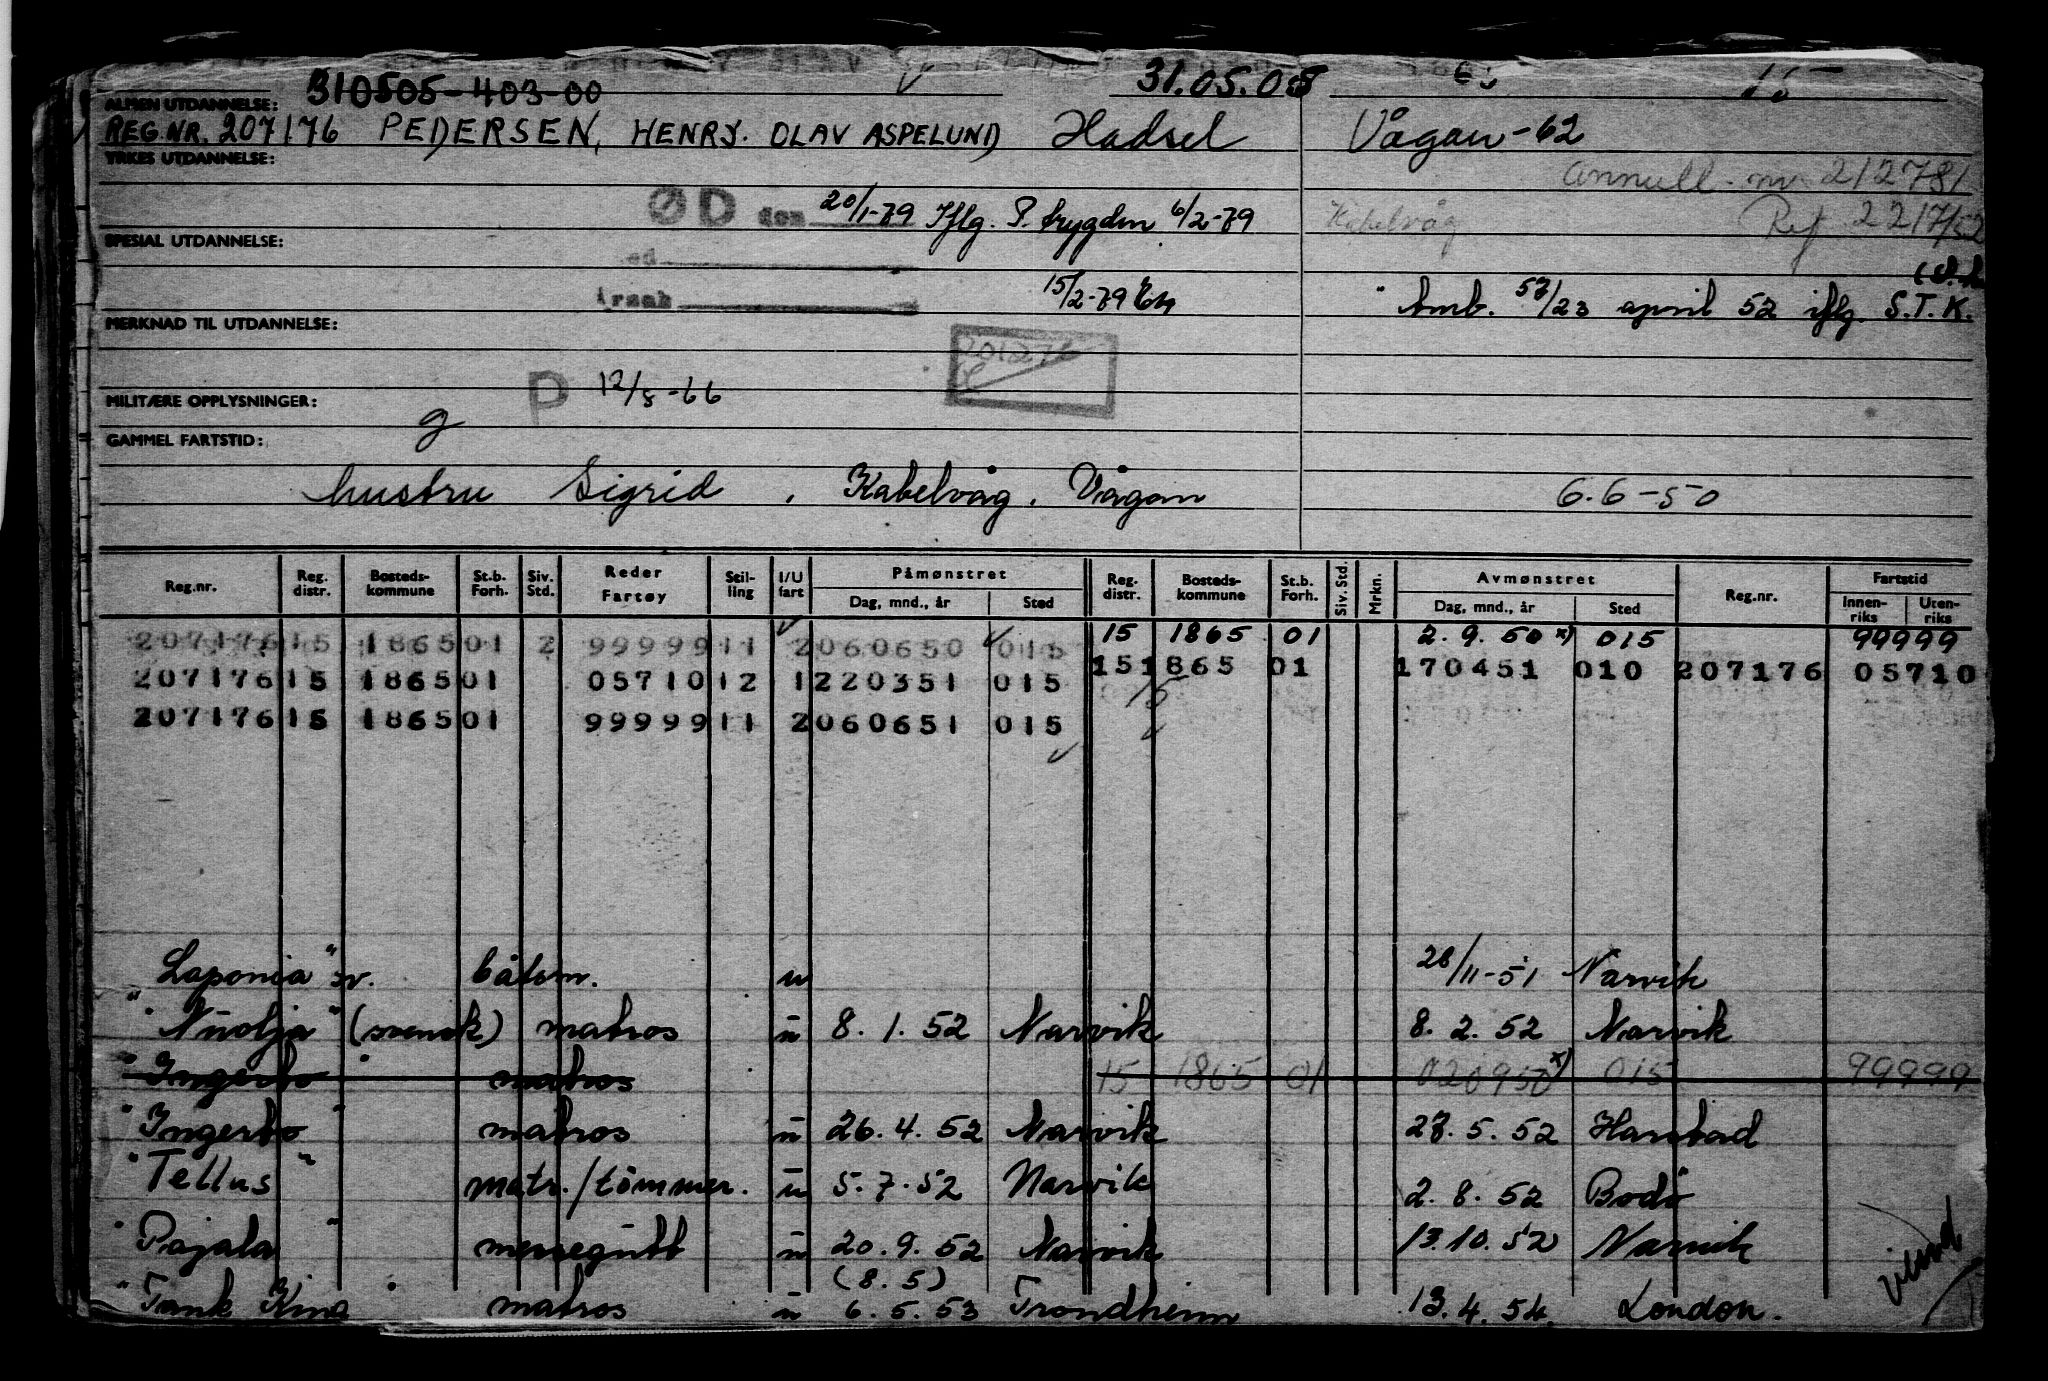 310505-403-00 31.05.05
ALMEN UTDANNELSE:
REG.NR. 207176 PEDERSEN, HENRY. OLAV ASPELUND Hadsel Vågan-62
YRKES UTDANNELSE: Annull. nr 212781
ØD den 20/1-79 Iflg. P. trygden 6/2-79 Kabelvåg Ref 2217/52
SPESIAL UTDANNELSE:
ed
Årsak 15/2-79 Amb. 52/23 april 52 iflg. S.T.K.
MERKNAD TIL UTDANNELSE:
P 12/8-66
MILITÆRE OPPLYSNINGER:
g
GAMMEL FARTSTID:
hustru Sigrid, Kabelvåg. Vågan 6.6-50
Reg.nr. Reg. distr. Bosteds-kommune St.b. Forh. Siv. Std. Reder Fartøy Stil-ling I/U fart Påmønstret Dag, mnd., år Sted Reg. distr. Bosteds-kommune St.b. Forh. Siv. Std. Mrkn. Avmønstret Dag, mnd., år Sted Reg.nr. Fartstid Innen-riks Uten-riks
207176 15 1865 01 2 99999 11 2 060650 015 15 1865 01 2.9.50 x) 015 99999
207176 15 1865 01 05710 12 1 220351 015 15 1865 01 170451 010 207176 05710
15
207176 15 1865 01 99999 11 2 060651 015
Laponia" sv. båtsm. u 28/11-51 Narvik
"Nuolja" (svensk) matros u 8.1.52 Narvik 8.2.52 Narvik
"Ingerto" matros 15 1865 01 020950 x) 015 99999
"Ingerto" matros u 26.4.52 Narvik 27.5.52 Harstad
"Tellus" matr./tömmer. u 5.7.52 Narvik 2.8.52 Bodö
"Pajala" messegutt u 20.9.52 Narvik 13.10.52 Narvik
(8.5)
"Tank King" matros u 6.5.53 Trondheim 13.4.54. London.